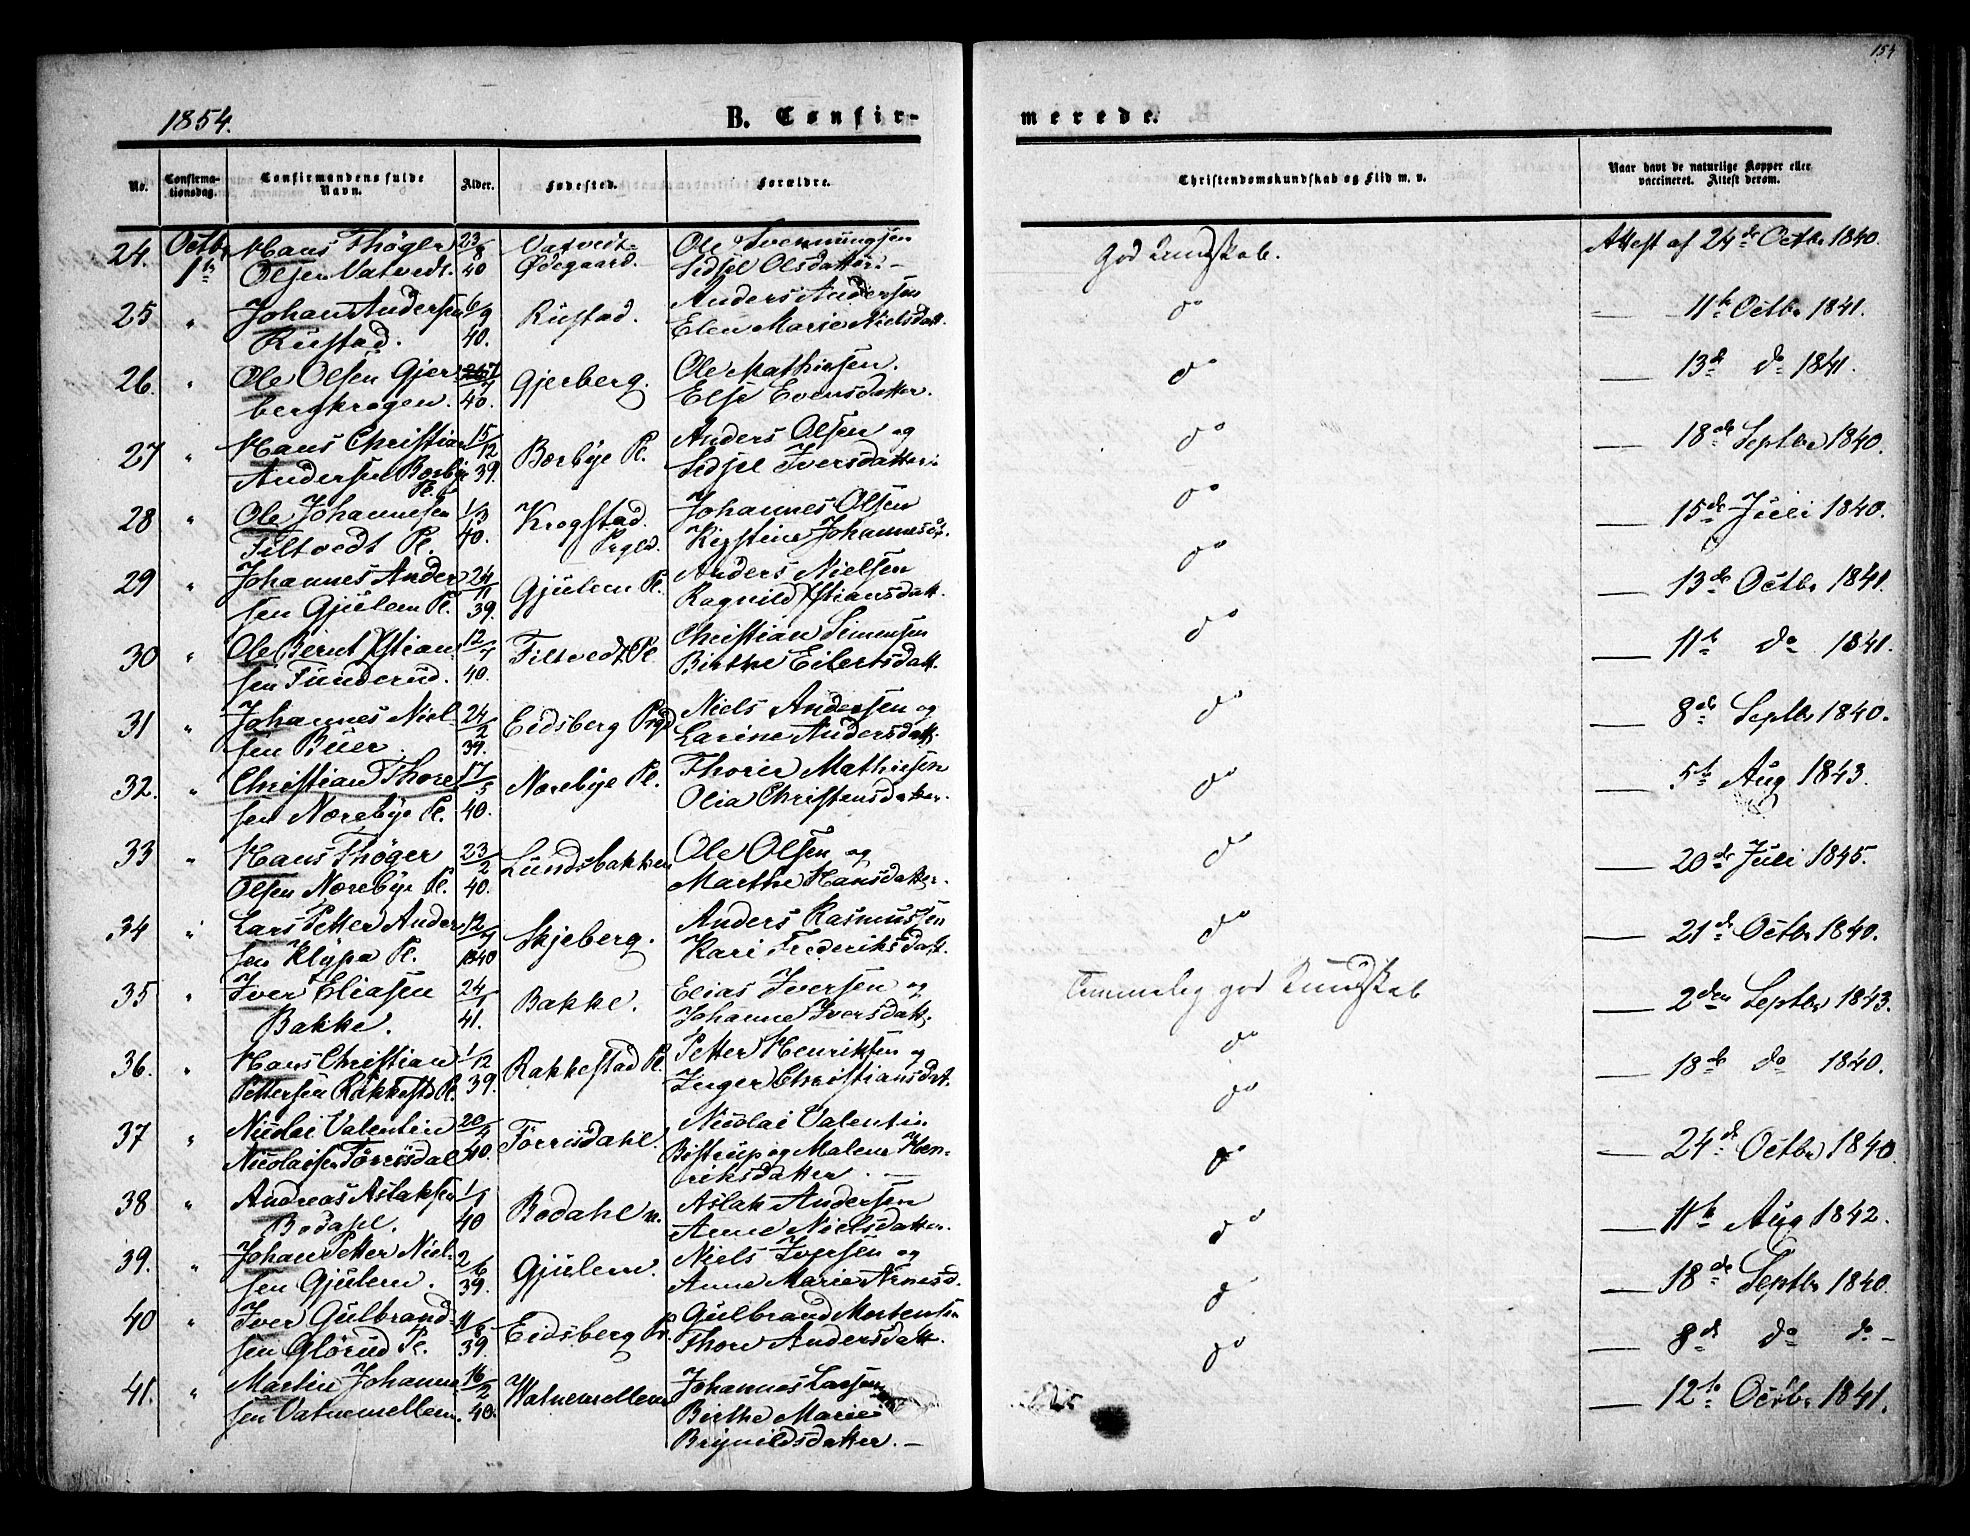 154
1854.
B. Confirmerede.
No. Confirmationsdag. Confirmandens fulde Navn. Alder. Fødested. Forældre. Christendomskundskab og Flid m. v. Naar havt de naturlige Kopper eller vaccineret. Attest derom.
24. Octbr 1ste Hans Thøger Olsen Vatvedt. 23/8 40 Vatvedt-Ødegaard. Ole Svennungsen Sidsel Olsdatter.- God Kundskab. Attest af 24de Octbr 1840.
25 " Johan Andersen Rustad. 6/9 40. Rustad. Anders Andersen Elen Marie Nielsdatt. do — 11te Octbr 1841.
26. " Ole Olsen Gjerbergkrogen. 40. Gjerberg. Ole Mathisen. Else Evensdatter. do — 13de do 1841.
27 " Hans Christian Andersen Børbye Pl. 15/12 39. Børbye Pl. Anders Olsen og Sidsel Iversdatter. do — 18de Septbr 1840.
28 " Ole Johannesen Tiltvedt Pl. 1/3 40. Krogstad Prgld. Johannes Olsen Kirstine Johannesd. do — 15de Juli 1840.
29 " Johannes Andersen Gjulem Pl. 24/11 39. Gjulem Pl. Anders Nielsen Ragnild Xstiansdatt. do — 13de Octbr 1841.
30 " Ole Bernt Xstiansen Funderud. 12/7 40. Tiltvedt Pl. Christian Simensen Birthe Eilertsdatt. do — 11te do 1841.
31 " Johannes Nielsen Buer. 24/2 39. Eidsberg Prgd Niels Andersen og Larine Andersdatt. do — 8de Septbr 1840.
32. " Christian Thoresen Nørebye Pl. 17/5 40. Nørebye Pl. Thorer Mathisen Olia Christensdatter. do — 5te Aug 1843.
33 " Hans Thøger Olsen Nørebye Pl. 23/2 40. Lundsbakken Ole Olsen og Marthe Hansdatter. do — 20de Juli 1845.
34 " Lars Petter Andersen Klypa Pl. 12/9 1840 Skjeberg. Anders Rasmussen Kari Frederiksdatt. do — 21de Octbr 1840.
35 " Iver Eliasen Bakke. 24/1 41. Bakke. Elias Iversen og Johanne Iversdatt. Temmelig god Kundskab — 2den Septbr 1843.
36. " Hans Christian Pettersen Rakkestd Pl. 1/12 39. Rakkestad Pl. Petter Henriksen og Inger Christiansdat. do — 18de do 1840.
37 " Nicolai Valentin Nicolaisen Tørrisdal 20/4 40. Tørrisdahl. Nicolai Valentin Bistrup og Malene Henriksdatter. do — 24de Octbr 1840.
38 " Andreas Aslaksen Bodahl. 1/1 40 Bodahl Aslak Andersen Anne Nielsdatter. do — 11te Aug 1842.
39. " Johan Petter Nielsen Gjulem. 2/6 39. Gjulem. Niels Iversen og Anne Marie Arnesd. do — 18de Septbr 1840.
40 " Iver Gulbrandsen Glørud Pl. 11/6 39. Eidsberg Pr. Gulbrand Mortensen Thore Andersdatt. do — 8de do do -
41. " Martin Johannesen Vatnemellem. 16/2 40. Watnemellem Johannes Larsen Birthe Marie Brynildsdatter. - do — 12te Octbr 1841.